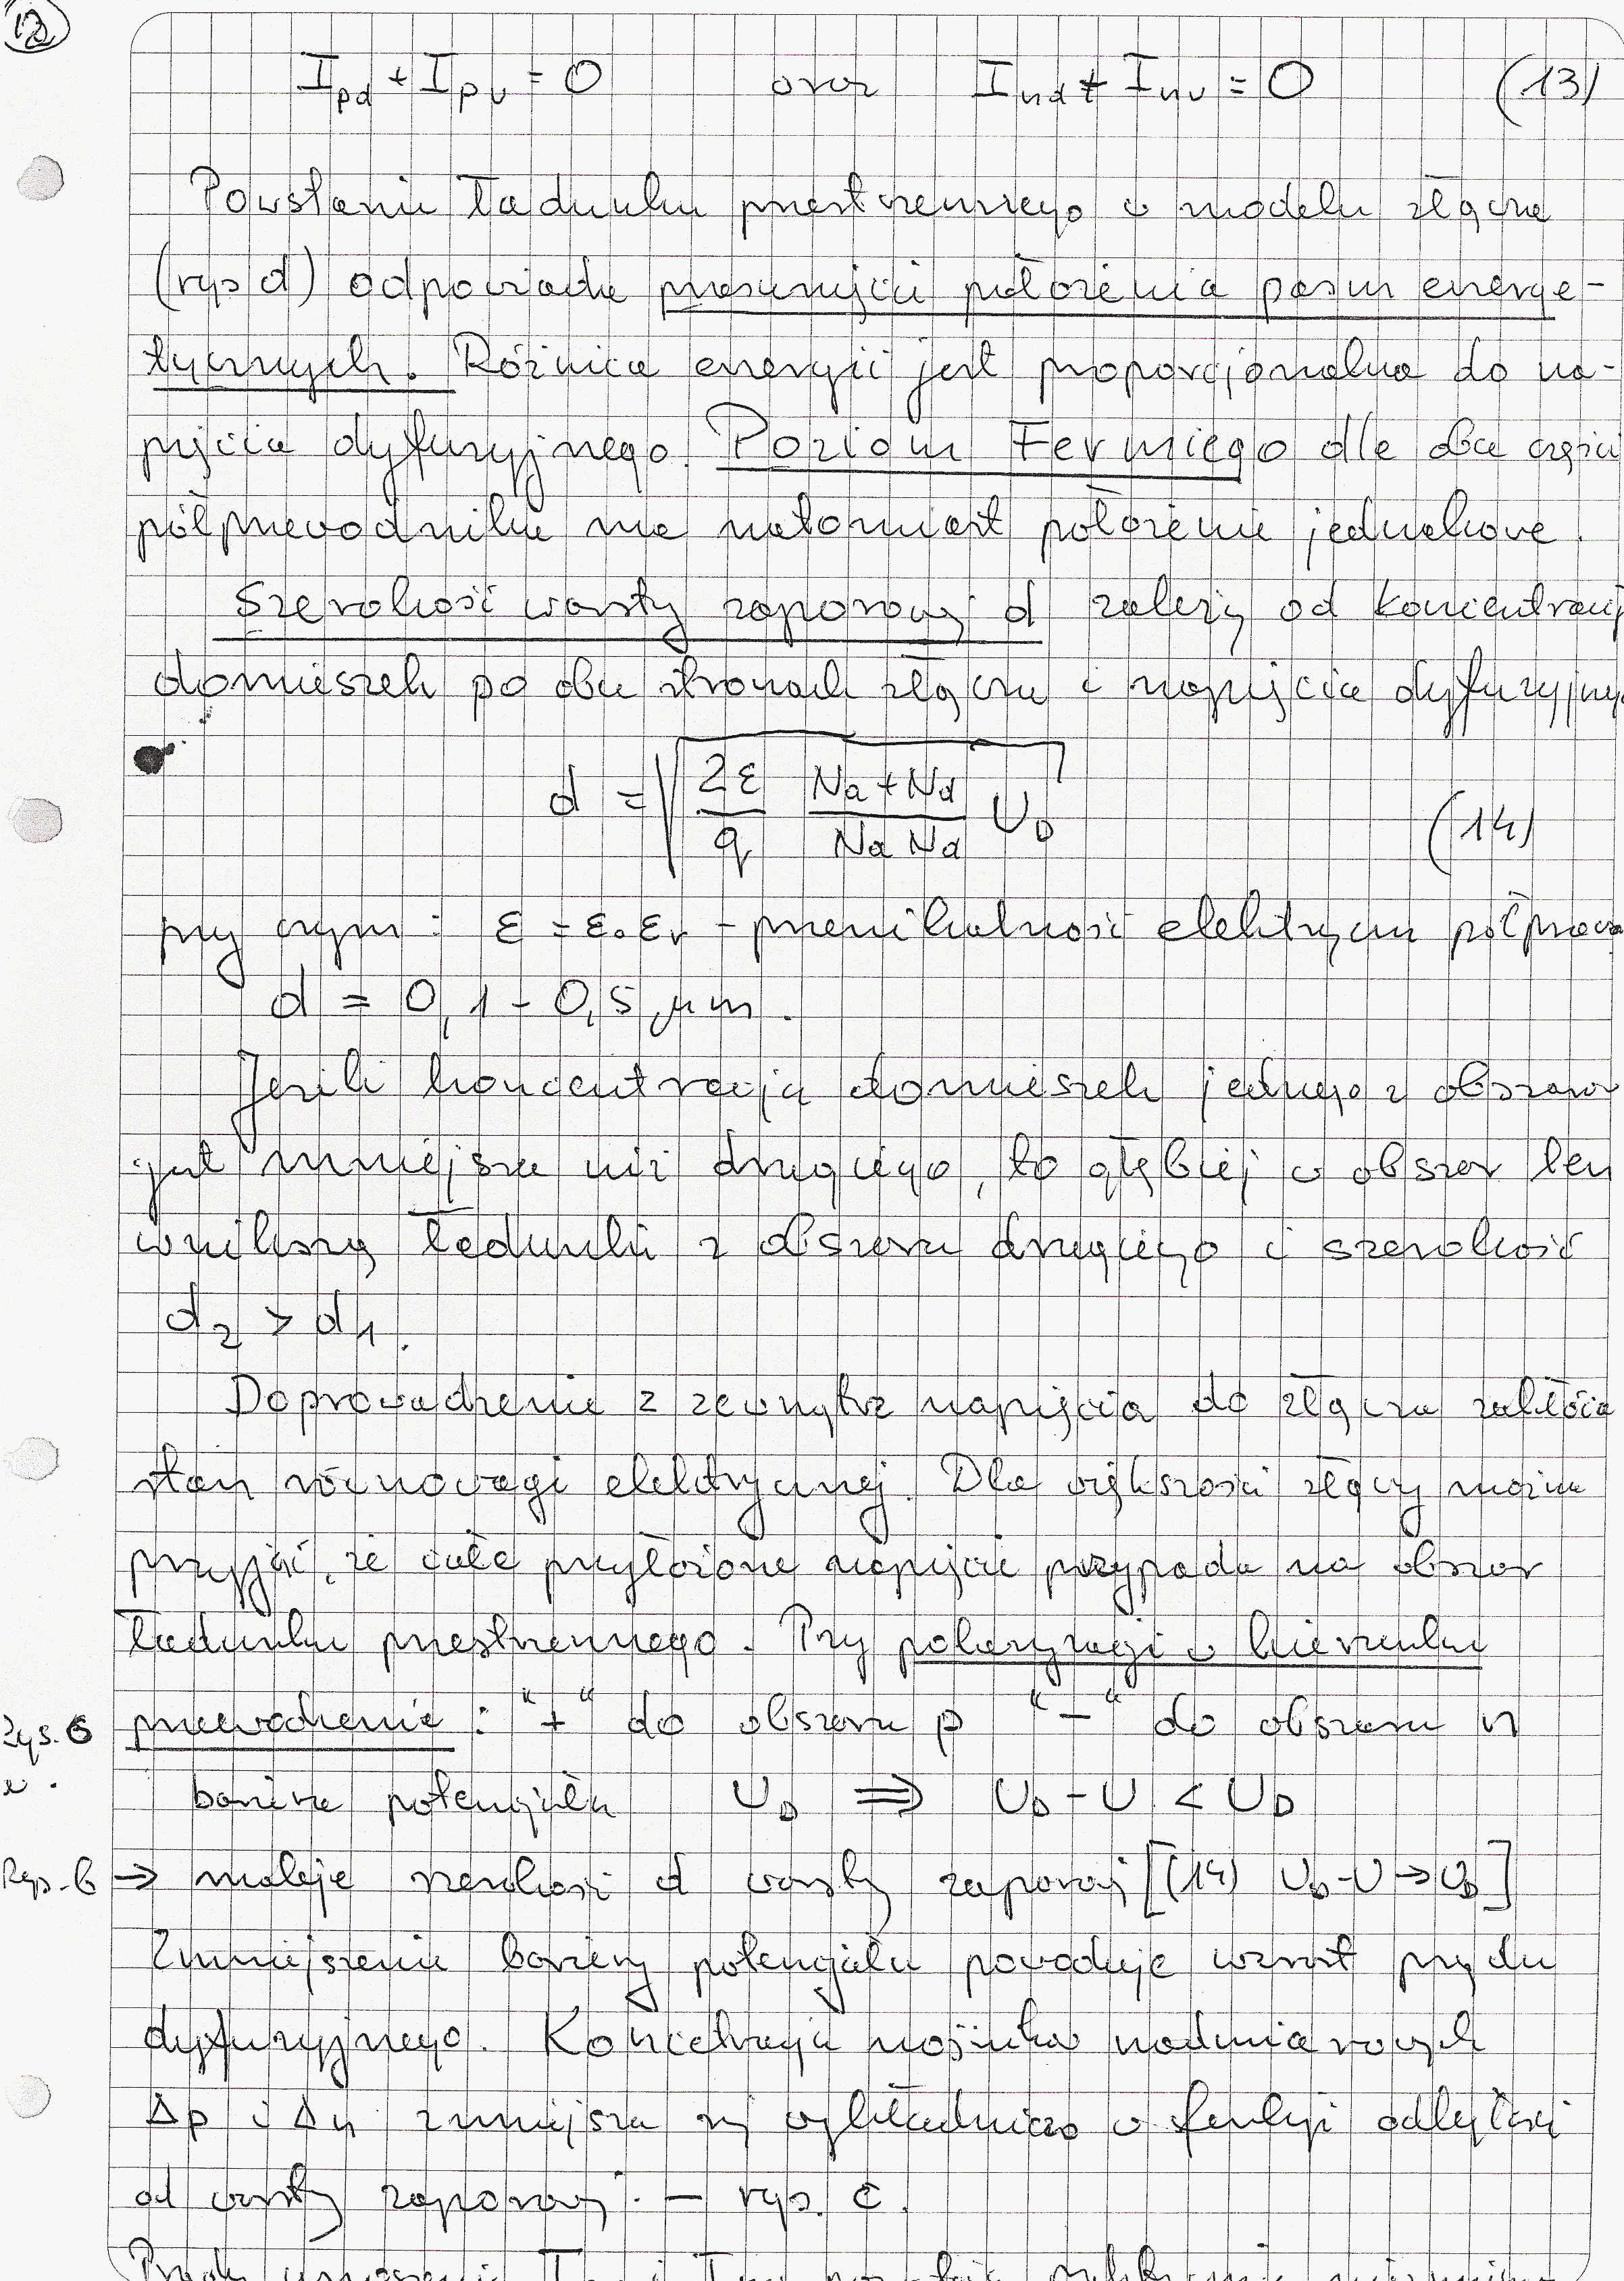 12
I_pd + I_pu = 0 oraz I_nd + I_nu = 0 (13)
Powstanie ładunku przestrzennego w modelu złącza
(rys d) odpowiada przesunięciu położenia pasm energe-
tycznych. Różnica energii jest proporcjonalna do na-
pięcia dyfuzyjnego. Poziom Fermiego dla obu części
półprzewodnika ma natomiast położenie jednakowe.
Szerokość warstwy zaporowej d zależy od koncentracji
domieszek po obu stronach złącza i napięcia dyfuzyjnego
d = √(2ε/q · (Na + Nd)/(Na Nd) · U_D) (14)
przy czym: ε = ε₀ εr – przenikalność elektryczna półprzew
d = 0,1 - 0,5 μm.
Jeżeli koncentracja domieszek jednego z obszarów
jest mniejsza niż drugiego, to głębiej w obszar ten
wnikają ładunki z obszaru drugiego i szerokość
d₂ > d₁.
Doprowadzenie z zewnątrz napięcia do złącza zakłóca
stan równowagi elektrycznej. Dla większości złączy można
przyjąć, że całe przyłożone napięcie przypada na obszar
ładunku przestrzennego. Przy polaryzacji w kierunku
Rys. 6 przewodzenia: "+" do obszaru p "-" do obszaru n
bariera potencjału U_D ⇒ U_D - U < U_D
Rys. b → maleje szerokość d warstwy zaporowej [(14) U_D - U → U_D]
Zmniejszenie bariery potencjału powoduje wzrost prądu
dyfuzyjnego. Koncetracja nośników nadmiarowych
Δp i Δn zmniejsza się wykładniczo w funkcji odległości
od warstwy zaporowej. – rys. c.
Prądy unoszenia